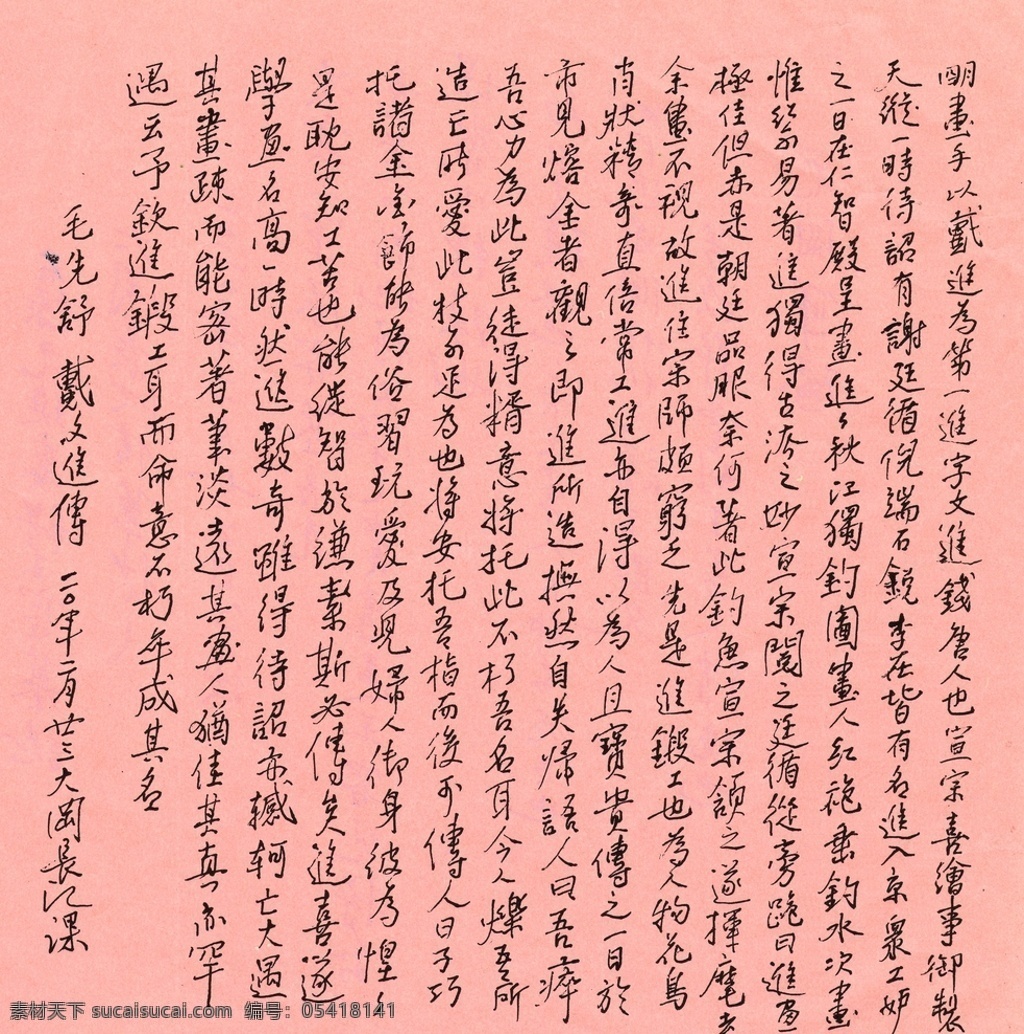 明畫手以戴進為第一進字文進錢唐人也宣宗喜繪事御製
天縱一時待詔有謝廷循倪端石銳李在皆有名進入京眾工妒
之一日在仁智殿呈畫進進秋江獨釣圖畫人紅袍垂釣水次畫
惟紅不易著進獨得古法之妙宣宗閱之廷循從旁跪曰進畫
極佳但赤是朝廷品服奈何著此釣魚宣宗頷之遂揮麾去
余畫不視故進住京師頗窮乏先是進鍛工也為人物花鳥
肖狀精奇直倍常工進亦自得以為人且寶貴傳之一日於
市見熔金者觀之即進所造撫然自失歸語人曰吾瘁
吾心力為此豈徒得糈意將托此不朽吾名耳今人爍吾所
造亡所愛此技不足為也將安托吾指而後可傳人曰子巧
托諸金金飾能為俗習玩愛及兒婦人御身彼為惶惶
是耽安知工苦也能徙智於縑素斯必傳矣進喜遂
學畫名高一時然進數奇雖得待詔亦轗軻亡大遇
其畫疏而能密著筆淡遠其畫人猶佳其真亦罕
遇云予欽進鍛工耳而命意不朽卒成其名
毛先舒 戴文進傳 二〇年二月廿三大岡長江課
素材天下 sucaisucai.com 编号：05418141